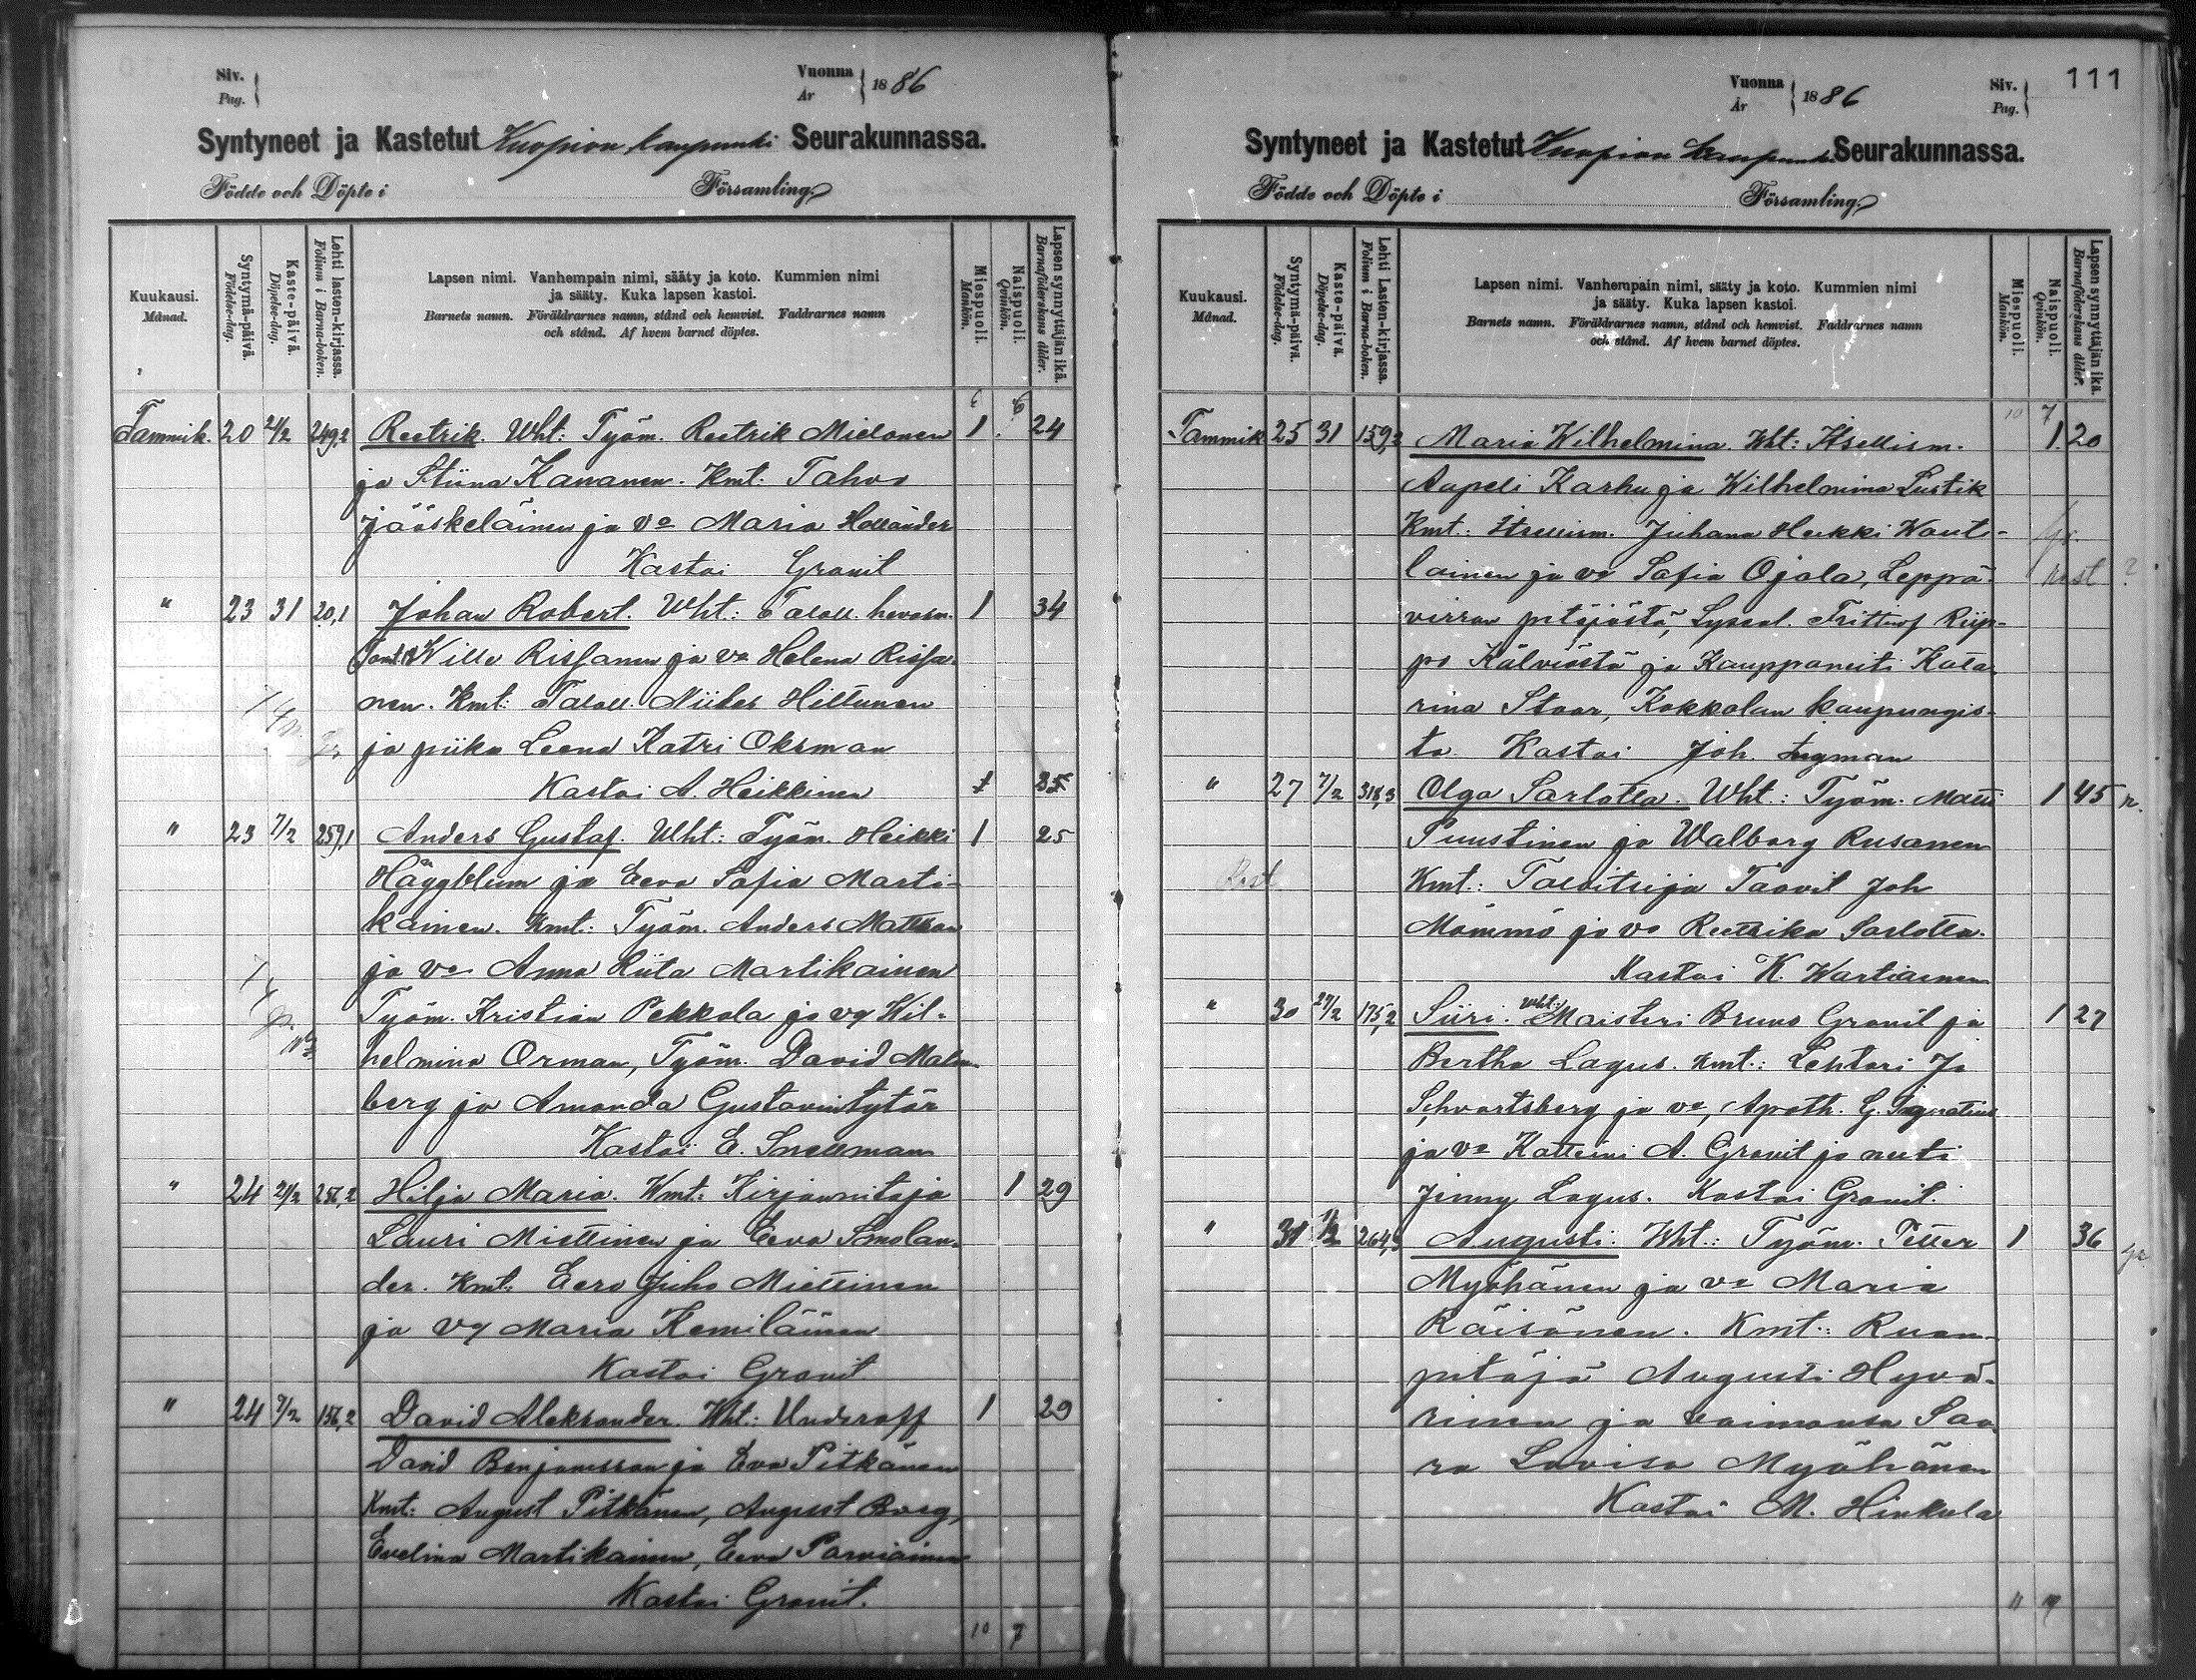 Siv.
Pag.
Vuonna
År
1886
Syntyneet ja Kastetut Kuopion kaupunki Seurakunnassa.
Födde och Döpte i Församling.
Kuukausi.
Månad.
Syntymä-päivä.
Födelse-dag.
Kaste-päivä.
Döpelse-dag.
Lehti lasten-kirjassa.
Folium i Barna-boken.
Lapsen nimi. Vanhempain nimi, sääty ja koto. Kummien nimi
ja sääty. Kuka lapsen kastoi.
Barnets namn. Föräldrarnes namn, stånd och hemvist. Faddrarnes namn
och stånd. Af hvem barnet döptes.
Miespuoli.
Mankön.
Naispuoli.
Qvinkön.
Lapsen synnyttäjän ikä.
Barnaföderskans ålder.
Tammik. 20 2/2 249,2 Reetrik. Wht: Työm. Reetrik Mielonen 1 24
ja Stiina Kananen. Kmt: Tahvo
Jääskeläinen ja vo Maria Holländer
Kastoi Granit
" 23 31 20,1 Johan Robert. Wht: Taloll. hevosm. 1 34
Wille Rissanen ja vo Helena Rissa-
nen. Kmt: Taloll. Hiltunen
ja piika Leena Katri Oksman
Kastoi A. Heikkinen 1 35
" 23 7/2 259,1 Anders Gustaf. Wht: Työm. Heikki 1 25
Häggblum ja Eeva Sofia Marti-
kainen. Kmt: Työm. Anders Mattson
ja vo Anna Riita Martikainen
Työm. Kristian Pekkola ja vo Wil-
helmina Orman, Työm. David Malm-
berg ja Amanda Gustavintytär
Kastoi E. Snellman
" 24 21/2 256,2 Hilja Maria. Wmt: Kirjanniteja 1 29
Lauri Miettinen ja Eeva Smolan-
der. Kmt: Eero Juho Miettinen
ja vo Maria Kemiläinen
Kastoi Granit
" 24 7/2 156,2 David Aleksander. Wht: Underoff 1 29
David Benjamsson ja Eva Pitkänen
Kmt: August Pitkänen, August Borg,
Evelina Martikainen, Eeva Parviainen
Kastoi Granit.
10 7
Vuonna
År
1886
Siv.
Pag.
111
Syntyneet ja Kastetut Kuopion kaupunki Seurakunnassa.
Födde och Döpte i Församling.
Kuukausi.
Månad.
Syntymä-päivä.
Födelse-dag.
Kaste-päivä.
Döpelse-dag.
Lehti Lasten-kirjassa.
Folium i Barna-boken.
Lapsen nimi. Vanhempain nimi, sääty ja koto. Kummien nimi
ja sääty. Kuka lapsen kastoi.
Barnets namn. Föräldrarnes namn, stånd och hemvist. Faddrarnes namn
och stånd. Af hvem barnet döptes.
Miespuoli.
Mankön.
Naispuoli.
Qvinkön.
Lapsen synnyttäjän ikä.
Barnaföderskans ålder.
10 7
Tammik 25 31 159,2 Maria Wilhelmina. Wht: Itsellism. 1 20
Aapeli Karhu ja Wilhelmina Lustik
Kmt: Itsellism. Juhana Heikki Wauti-
lainen ja vo Sofia Ojala, Leppä-
virran pitäjästä, Lyseol. Frithiof Riip-
po Kälviästä ja Kauppaneiti Kata-
rina Stoor, Kokkolan kaupungis-
ta Kastoi Joh. Ingman
" 27 7/2 318,3 Olga Sarlotta. Wht: Työm. Matti 1 45
Puustinen ja Walborg Rusanen
Kmt: Taavit Joh
Mömmö ja vo Reetrika Sarlotta.
Kastoi K. Wartiainen
" 30 27/2 175,2 Siiri. Wht: Maisteri Bruno Granit ja 1 27
Bertha Lagus. Kmt: Lehtori Ja
Schvartsberg ja vo, Apoth. G. Ignatius
ja vo A. Granit ja neiti
Jenny Lagus. Kastoi Granit.
" 31 264,3 Augusti. Wht: Työm. Petter 1 36
Myöhänen ja vo Maria
Räisänen. Kmt: Ruan-
pitäjä Augusti Hyvä-
rinen ja vaimonsa Saa-
ra Lovisa Myöhänen
Kastoi M. Hinkula
11 9